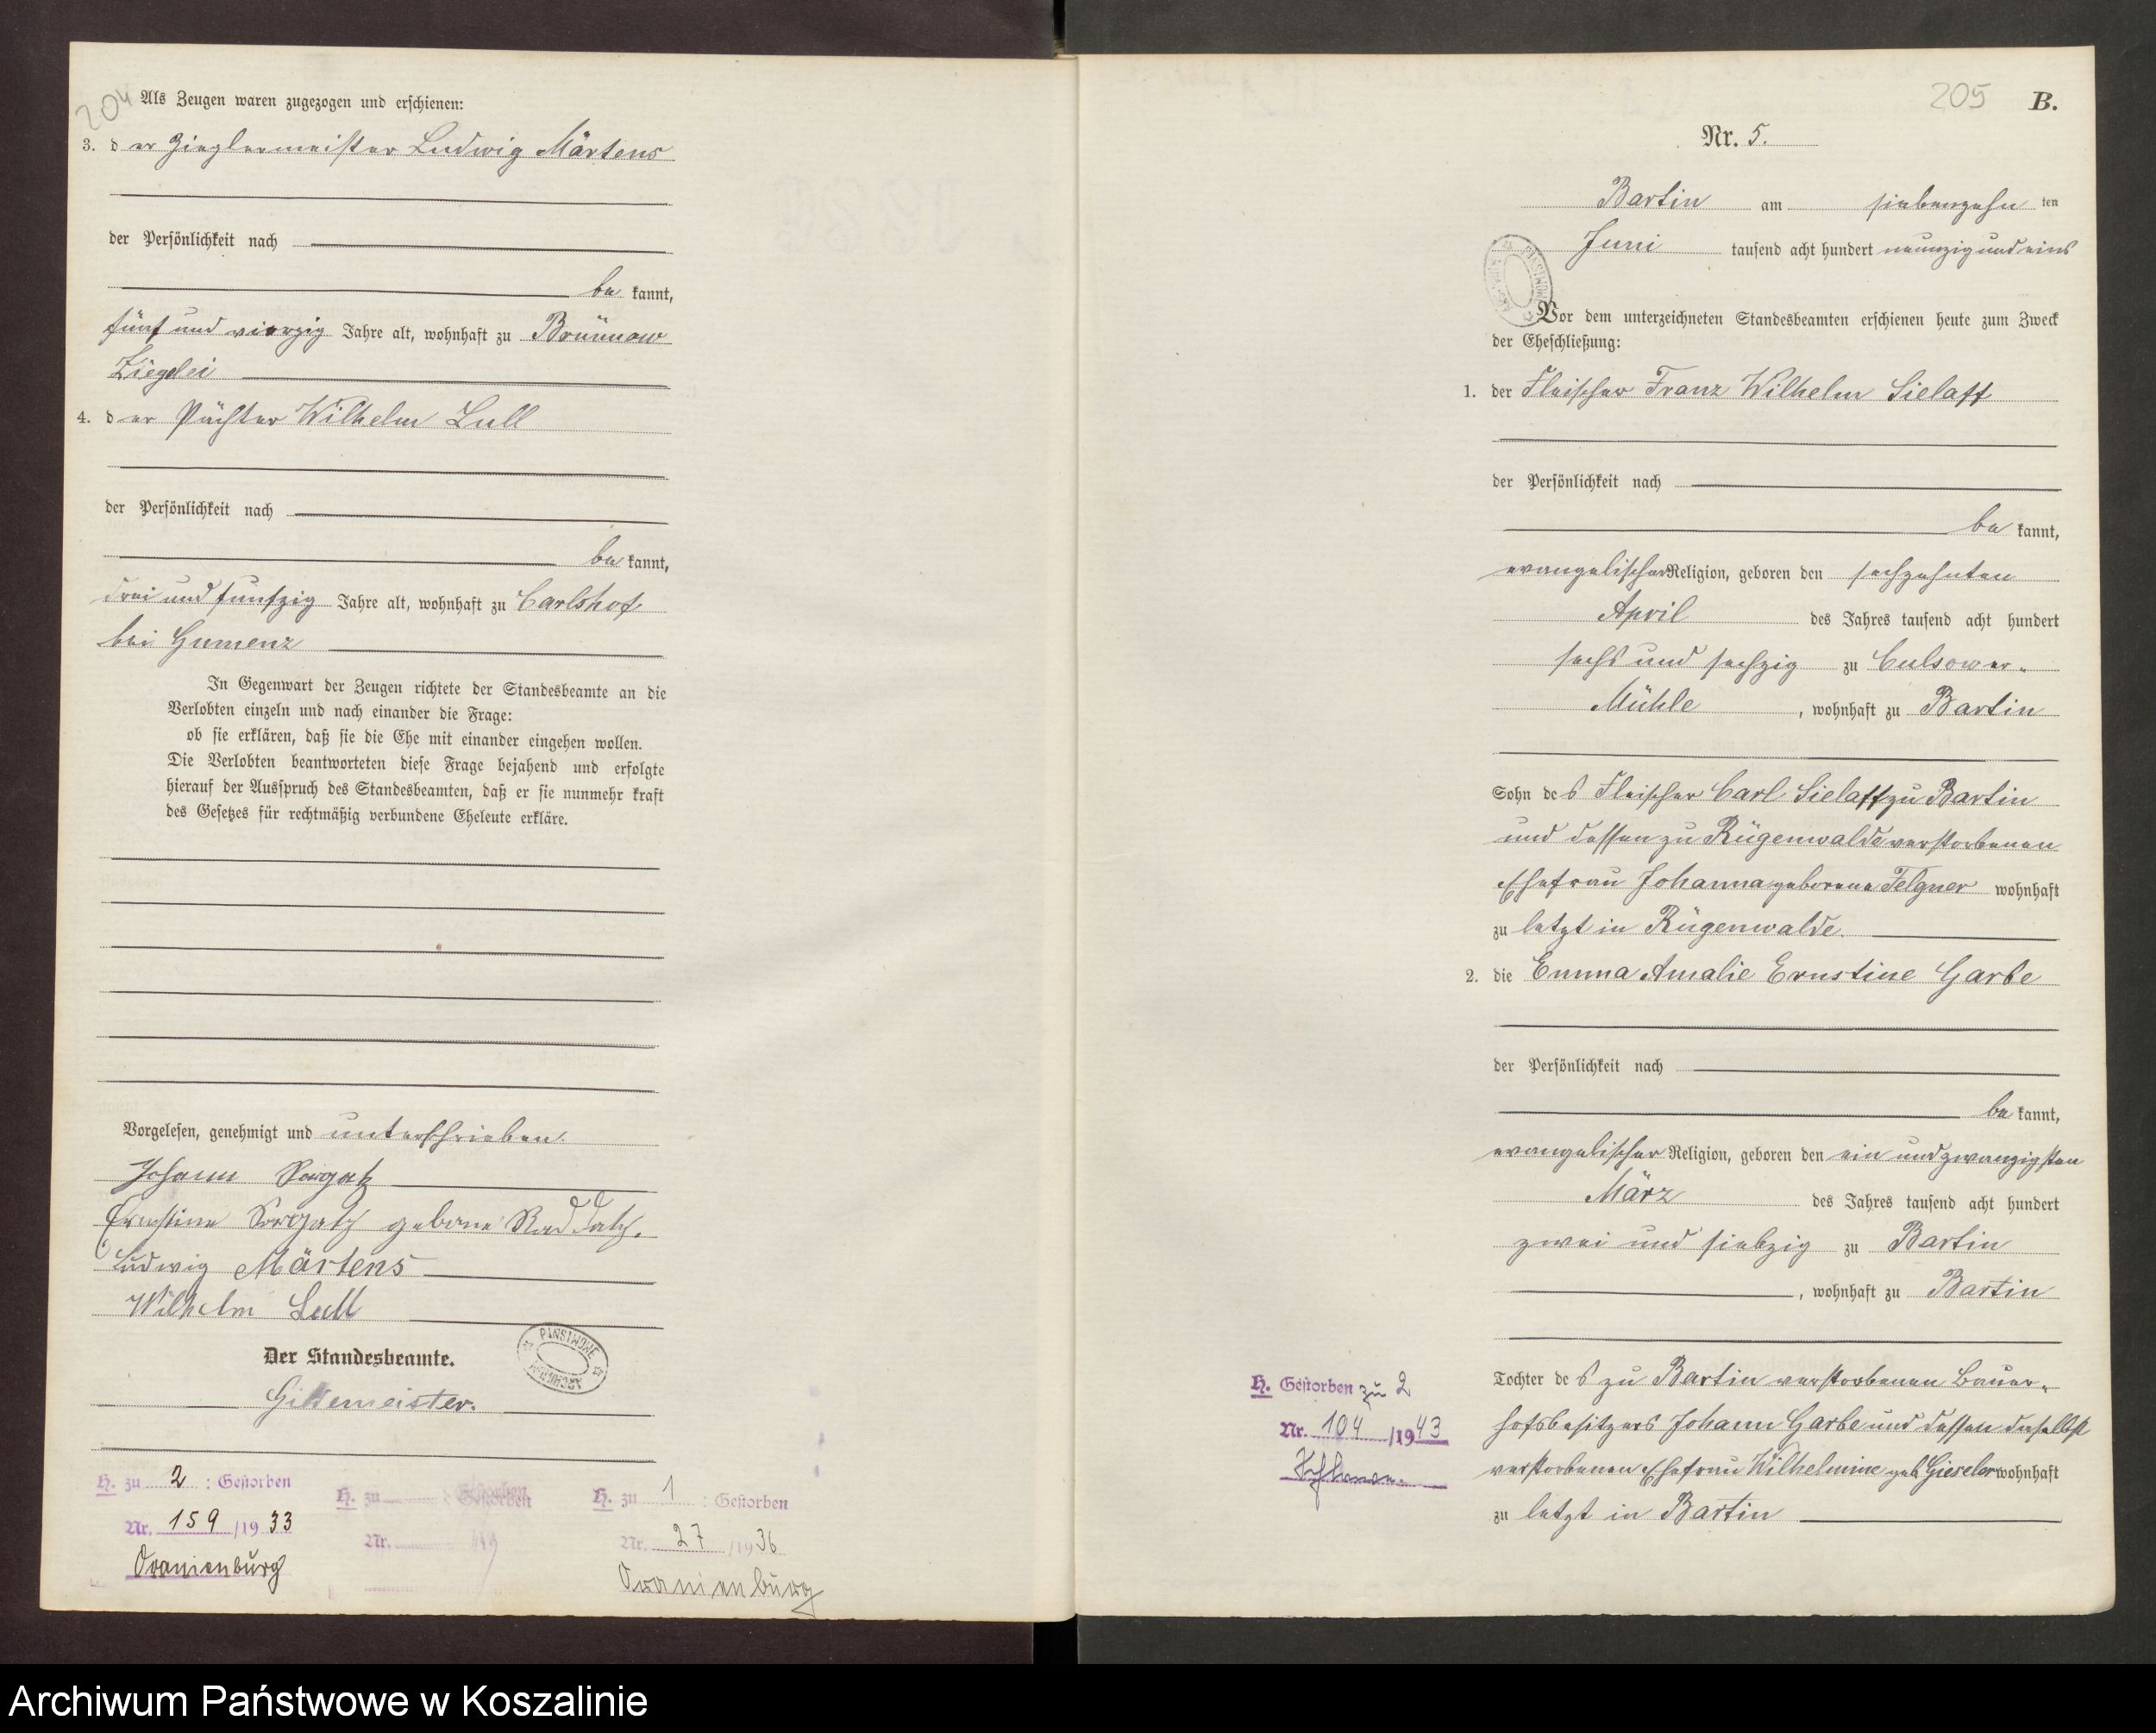 204
Als Zeugen waren zugezogen und erschienen:
3. der Zieglermeister Ludwig Märtens
der Persönlichkeit nach
be kannt,
fünf und vierzig Jahre alt, wohnhaft zu Brünnow
Ziegelei
4. der Pächter Wilhelm Lull
der Persönlichkeit nach
be kannt,
drei und funfzig Jahre alt, wohnhaft zu Carlshof
bei Gumenz
In Gegenwart der Zeugen richtete der Standesbeamte an die
Verlobten einzeln und nach einander die Frage:
ob sie erklären, daß sie die Ehe mit einander eingehen wollen.
Die Verlobten beantworteten diese Frage bejahend und erfolgte
hierauf der Ausspruch des Standesbeamten, daß er sie nunmehr kraft
des Gesetzes für rechtmäßig verbundene Eheleute erkläre.
Vorgelesen, genehmigt und unterschrieben.
Johann Sorgatz
Ernstine Sorgatz geborne Raddatz.
Ludwig Märtens
Wilhelm Lull
Der Standesbeamte.
Gildemeister.
H. zu 2 : Gestorben
Nr. 159 /1933
Oranienburg
H. zu : Gestorben
Nr.
H. zu 1 : Gestorben
Nr. 27 /1936
Oranienburg
205 B.
Nr. 5.
Bartin am siebenzehn ten
Juni tausend acht hundert neunzig und eins
Vor dem unterzeichneten Standesbeamten erschienen heute zum Zweck
der Eheschließung:
1. der Fleischer Franz Wilhelm Sielaff
der Persönlichkeit nach
be kannt,
evangelischer Religion, geboren den sechzehnten
April des Jahres tausend acht hundert
sechs und sechzig zu Culsower-
Mühle, wohnhaft zu Bartin
Sohn des Fleischer Carl Sielaff zu Bartin
und dessen zu Rügenwalde verstorbenen
Ehefrau Johanna geborene Felgner wohnhaft
zu letzt in Rügenwalde.
2. die Emma Amalie Ernstine Garbe
der Persönlichkeit nach
be kannt,
evangelischer Religion, geboren den ein und zwanzigsten
März des Jahres tausend acht hundert
zwei und siebzig zu Bartin
, wohnhaft zu Bartin
Tochter des zu Bartin verstorbenen Bauer-
hofsbesitzers Johann Garbe und dessen daselbst
verstorbenen Ehefrau Wilhelmine geb. Gieseler wohnhaft
zu letzt in Bartin
H. Gestorben zu 2
Nr. 104 /1943
Archiwum Państwowe w Koszalinie